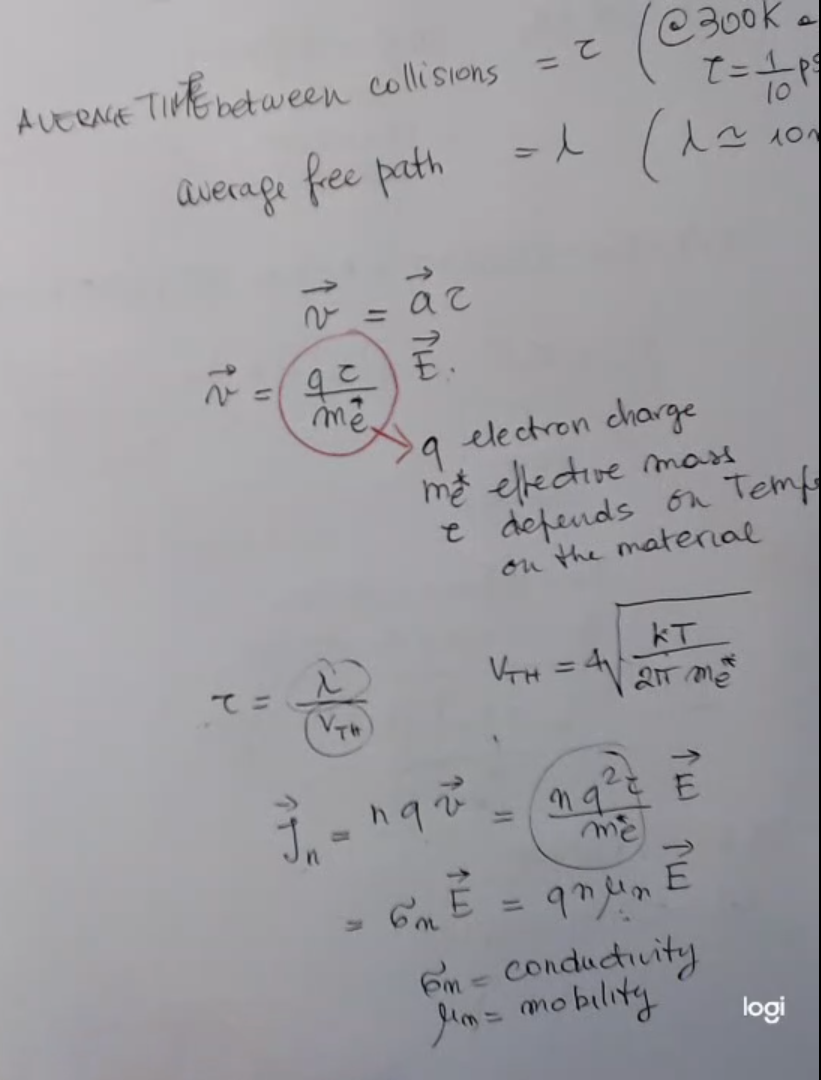 AVERAGE TIME between collisions = τ (@300K
τ = 1/10 ps
average free path = λ (λ ≃ 10
v⃗ = a⃗ τ
v⃗ = qτ/me* E⃗.
q electron charge
me* effective mass
τ depends on Temp
on the material
τ = λ/VTH
VTH = 4√(kT/2π me*)
J⃗n = n q v⃗ = nq²τ/me* E⃗
= σn E⃗ = q n μn E⃗
σn = conductivity
μn = mobility
logi